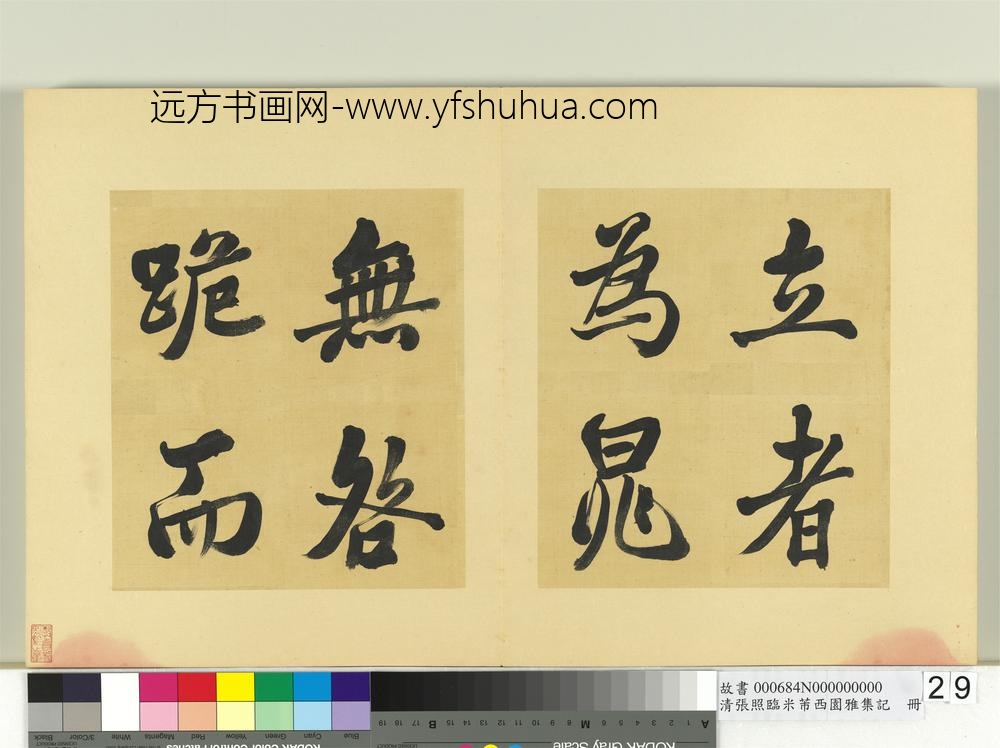 远方书画网-www.yfshuhua.com
立者
為晁
無咎
跪而
故書 000684N000000000
清張照臨米芾西園雅集記 冊
29
Black
3/Color
White
Magenta
Red
Yellow
Green
Cyan
Blue
A 1 2 3 4 5 6 M 8 9 10 11 12 13 14 15 B 17 18 19
KODAK Gray Scale